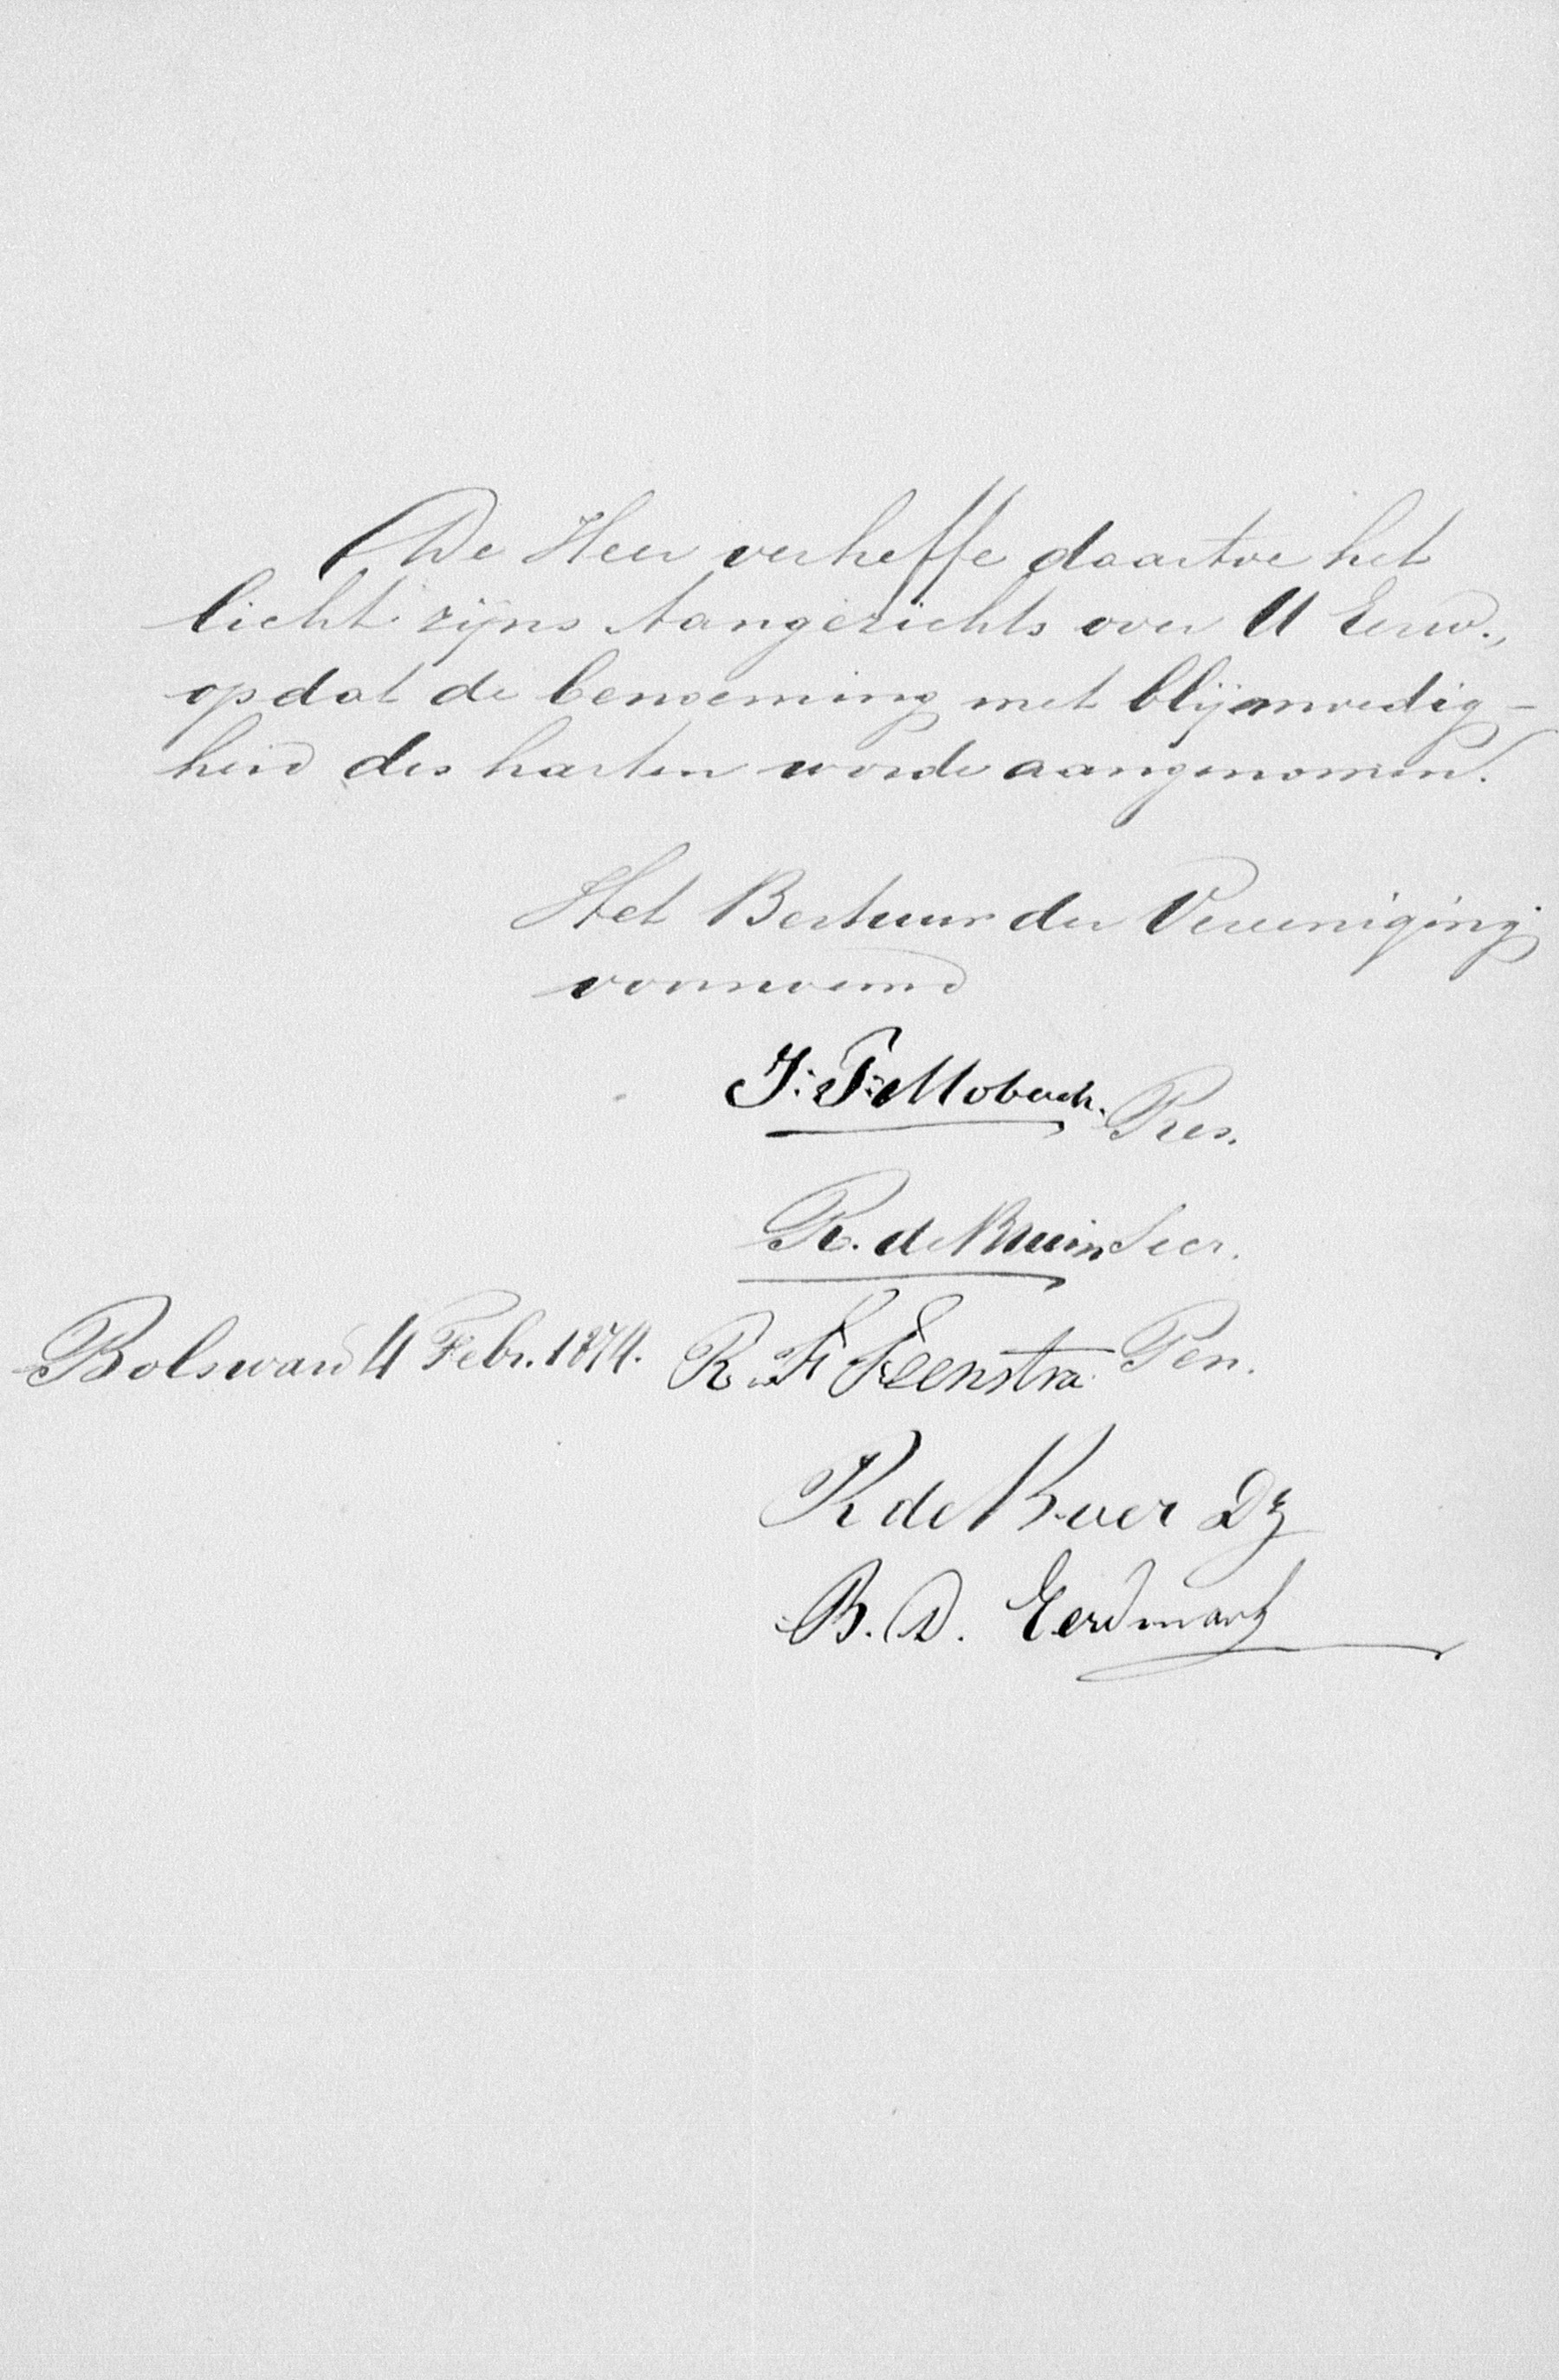 De Heer verheffe daartoe het
licht zijns Aangezichts over U Eerw.,
opdat de benoeming met blijmoedig-
heid des harten worde aangenomen.
Het Bestuur der Vereeniging
voornoemd
J: F: Mobach. Pres.
R. de Bruin Secr.
Bolsward 4 Febr. 1874. R. F. Feenstra Pen.
K de Boer Dz
B. D. Eerdmans